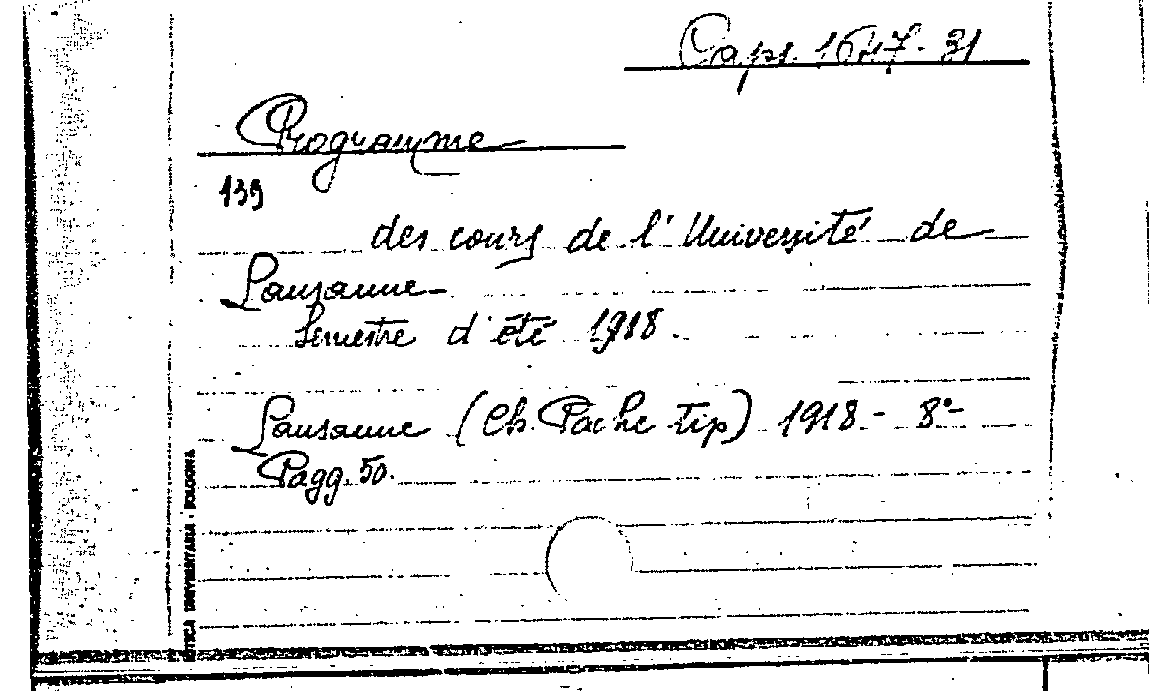 Caps. 1647-31
Programme
139
des cours de l'Université de
Lausanne-
Semestre d'été 1918.
Lausanne (Ch. Pache tip) 1918 - 8°-
Pagg. 50.
UNIVERSITARIA - BOLOGNA